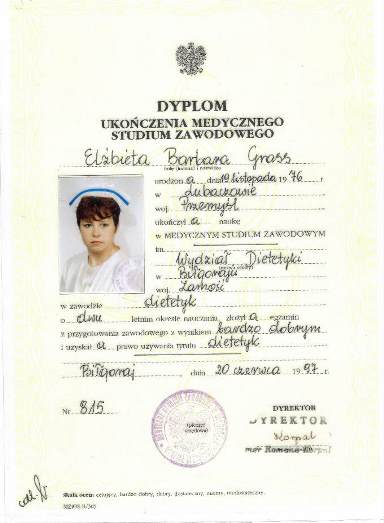 DYPLOM
UKOŃCZENIA MEDYCZNEGO
STUDIUM ZAWODOWEGO
Elżbieta Barbara Grass
urodzon a dnia 19 listopada 1976 r
w Lubaczowie
woj. Przemyśl
ukończył a naukę
w MEDYCZNYM STUDIUM ZAWODOWYM
im.
Wydział Dietetyki
w Biłgoraju
woj. Zamość
w zawodzie dietetyk
o dwu letnim okresie nauczania, złożył a egzamin
z przygotowania zawodowego z wynikiem bardzo dobrym
i uzyskał a prawo używania tytułu dietetyk
Biłgoraj dnia 20 czerwca 1997 r.
Nr 815
DYREKTOR
DYREKTOR
mgr Romana
Skala ocen: celujący, bardzo dobry, dobry, dostateczny, mierny, niedostateczny.